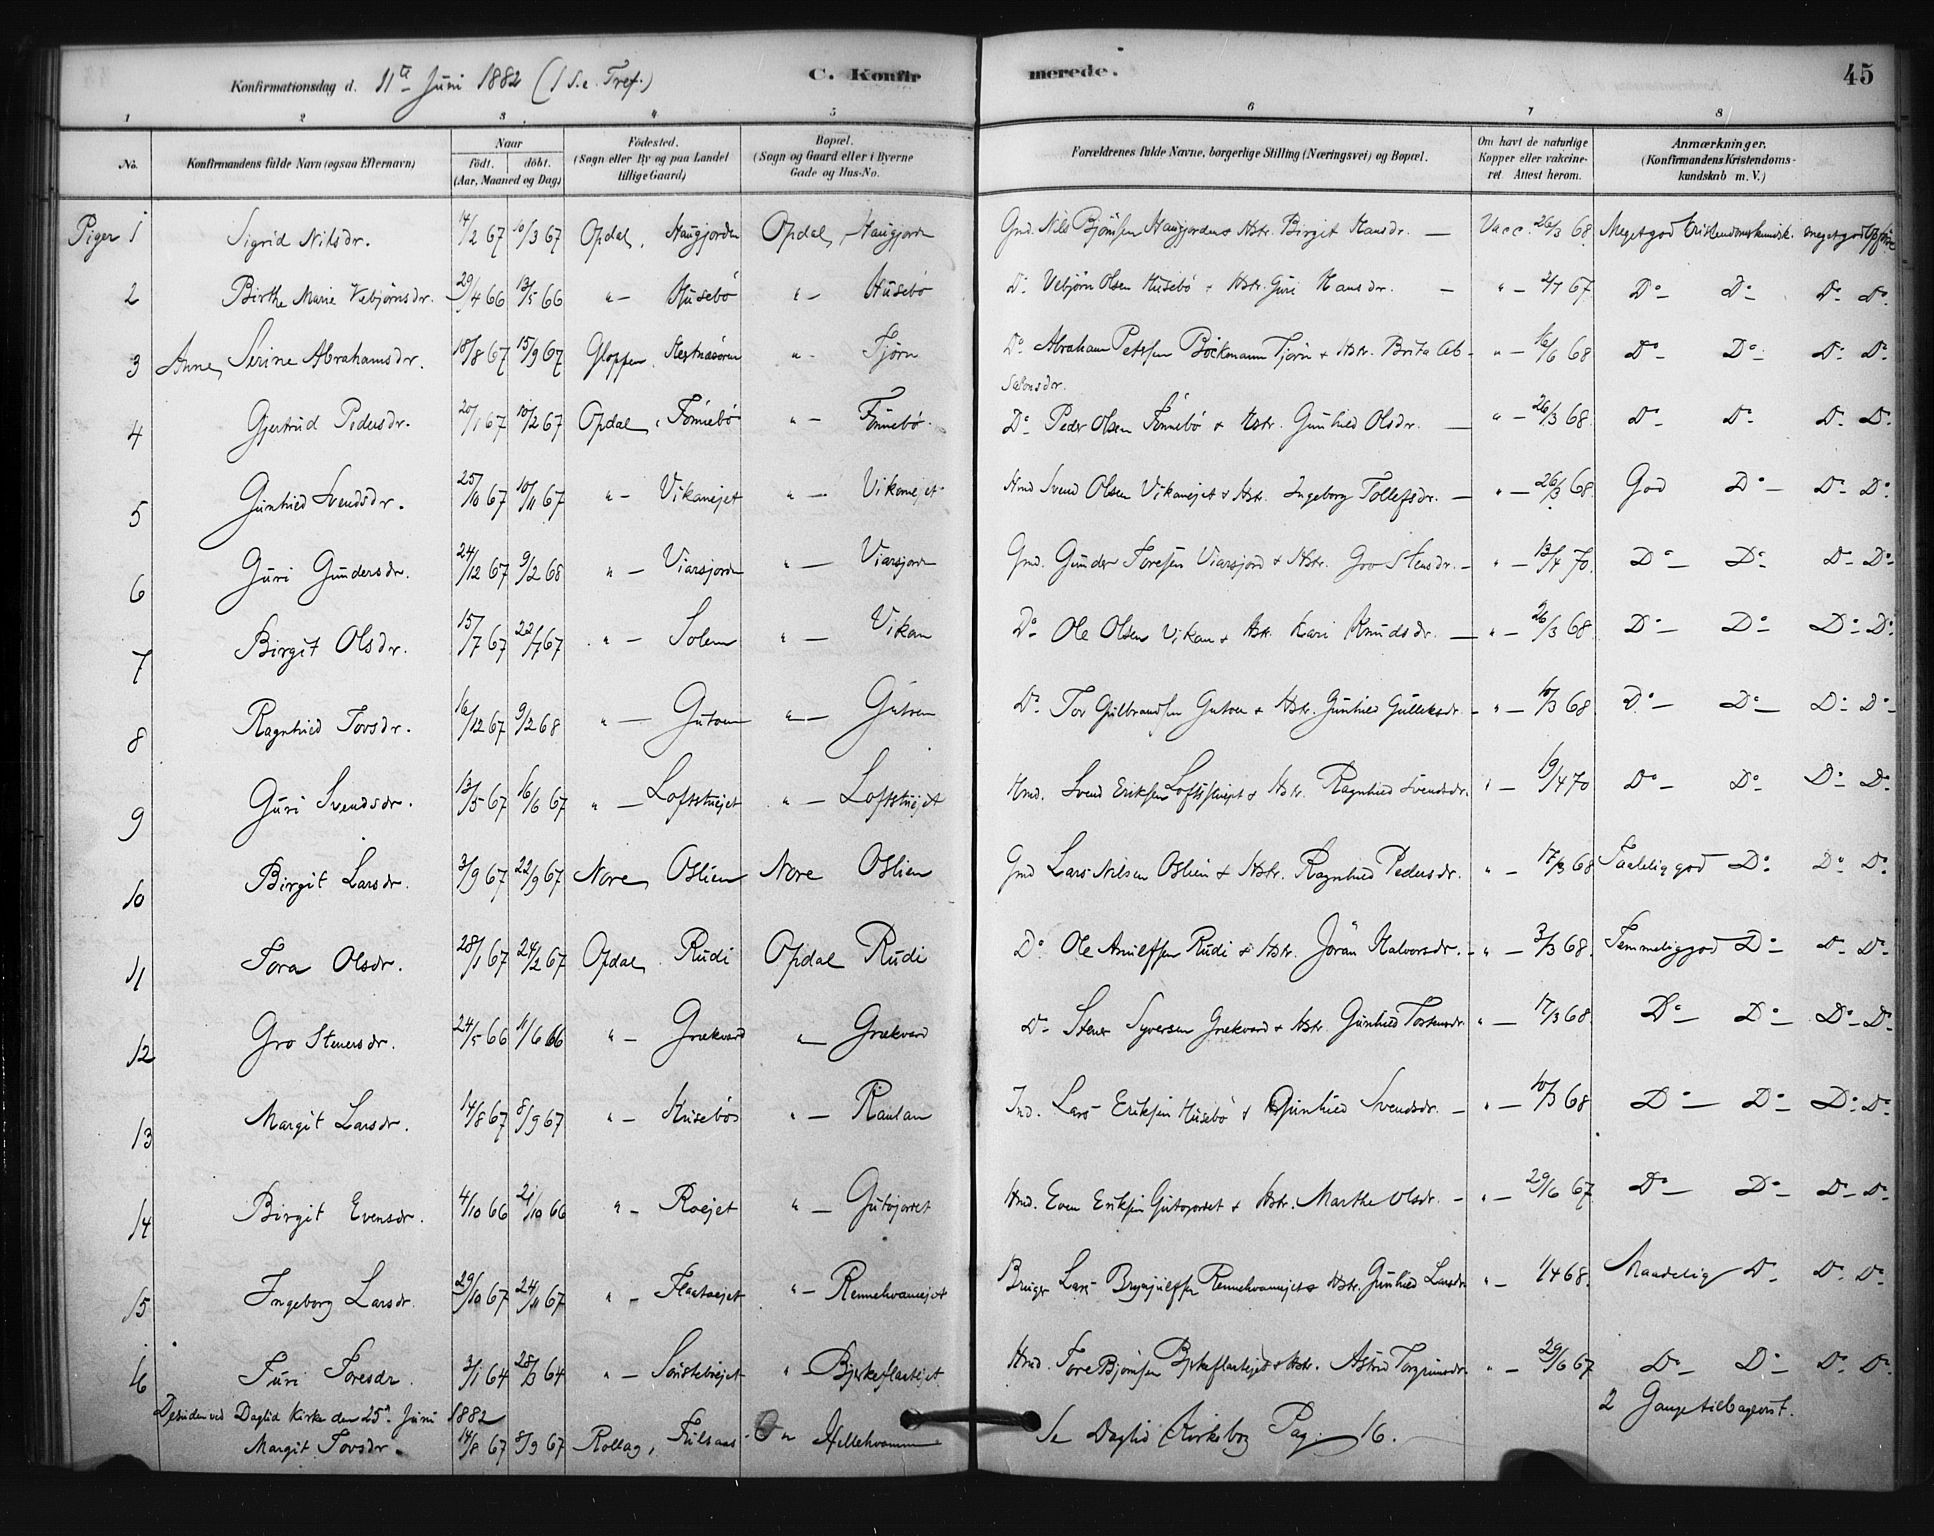 Konfirmationsdag d. 11te Juni 1882 (1 S.e. Tref.) C. Konfirmerede. 45
1 2 3 4 5 6 7 8
No. Konfirmandens fulde Navn (ogsaa Efternavn) Naar födt. döbt. (Aar, Maaned og Dag) Födested. (Sogn eller By og paa Landet tillige Gaard) Bopæl. (Sogn og Gaard eller i Byerne Gade og Hus-No. Forældrenes fulde Navne, borgerlige Stilling (Næringsvei) og Bopæl. Om havt de naturlige Kopper eller vakcineret Attest herom. Anmærkninger. (Konfirmandens Kristendomskundskab m. V.)
Piger 1 Sigrid Nilsdr. 14/2 67 10/3 67 Opdal, Haugjorden Opdal, Haugjorden Gmd. Nils Bjørnsen Haugjorden & Hstr. Birgit Hansdr. — Vacc. 26/3 68. Megetgod Kristendomskundsk. megetgod Opførs
2 Birthe Marie Vebjørnsdr. 29/4 66 13/5 66 " — Husebø " — Husebø Do Vebjørn Olsen Husebø & Hstr. Guri Hansdr. — " — 2/7 67 Do — Do — Do Do
3 Anne Serine Abrahamsdr. 18/8 67 15/9 67 Gloppen, " — Tjørn Do Abraham Petersen Böckmann Tjørn & Hstr. Brita Absalonsdr. " — 16/6 68 Do — Do — Do Do
4 Gjertrud Pedersdr. 20/1 67 10/2 67 Opdal, Fønnebø " — Fønnebø. Do Peder Olsen Fønnebø & Hstr. Gunhild Olsdr. — " — 26/3 68. Do — Do — Do Do
5 Gunhild Svendsdr. 25/10 67 10/11 67 " — Vikanejet " — Vikanejet Hmd Svend Olsen Vikanejet & Hstr. Ingeborg Tollefsdr. — " — 26/3 68 God Do — Do — Do
6 Guri Gundersdr. 24/12 67 9/2 68 " — Viarsjorden " — Viarsjorden Gmd. Gunder Toresen Viarsjord & Hstr. Gro Stensdr. — " — 13/4 70. Do — Do — Do — Do
7 Birgit Olsdr. 15/7 67 22/7 67 " — Solem " — Vikan Do Ole Olsen Vikan & Hstr. Kari Knudsdr. — " — 26/3 68. Do — Do — Do — Do
8 Ragnhild Torsdr. 16/12 67 9/2 68 " — Gutuen " — Gutuen Do Tor Gulbrandsen Gutuen & Hstr. Gunhild Gulleksdr. — " — 10/3 68 Do — Do — Do — Do
9 Guri Svendsdr. 13/5 67 16/6 67 " — Loftsthuejet " — Loftsthuejet Hmd. Svend Eriksen Loftsthuejet & Hstr. Ragnhild Svendsdr. " — 19/4 70 Do — Do Do — Do
10 Birgit Larsdr. 3/9 67 22/9 67 Nore, Oslien Nore Oslien Gmd Lars Nilsen Oslien & Hstr. Ragnhild Pedersdr. " — 17/3 68 Taaleliggod Do Do — Do
11 Tora Olsdr. 28/1 67 24/2 67 Opdal, Rudi Opdal Rudi Do Ole Anulfsen Rudi & Hstr. Jøran Halvorsdr. — " — 3/3 68. Temmeliggod Do — Do — Do
12 Gro Stenersdr. 24/5 66 11/6 66 " — Grækvard " — Grækvard Do Stener Syversen Grækvard & Hstr. Gunhild Tostensdr. " — 17/3 68. Do — Do — Do — Do
13 Margit Larsdr. 14/8 67 8/9 67 " — Husebø " — Raulan Ind. Lars Eriksen Husebø & Gunhild Svendsdr. — " — 10/3 68 Do — Do — Do — Do
14 Birgit Evensdr. 4/10 66 21/10 66 " — Roejet " — Gutojordet Hmd. Even Eriksen Gutojordet & Hstr. Marthe Olsdr. — " — 29/6 67 Do — Do — Do — Do
15 Ingeborg Larsdr. 29/10 67 24/11 67 " — Flaatoejet " — Rennehvamejet Bruger Lars Brynjulfsen Rennehvamejet & Hstr. Gunhild Larsdr " — 1/4 68. Maadelig Do — Do Do
16 Turi Toresdr. 3/1 64 28/3 64 " — " Bjerkeflaatejet Hmd. Tore Bjørnsen Bjerkeflaatejet & Hstr. Astrid Torgrimsdr " — 29/6 67 Do — Do — Do — Do
2 Gange tilbagevist.
Desuden ved Daglid Kirke den 25de Juni 1882
Margit Torsdr. 14/8 67 8/9 67 Rollag, Hellehvamm Se Daglid Kirkebog Pag. 16.